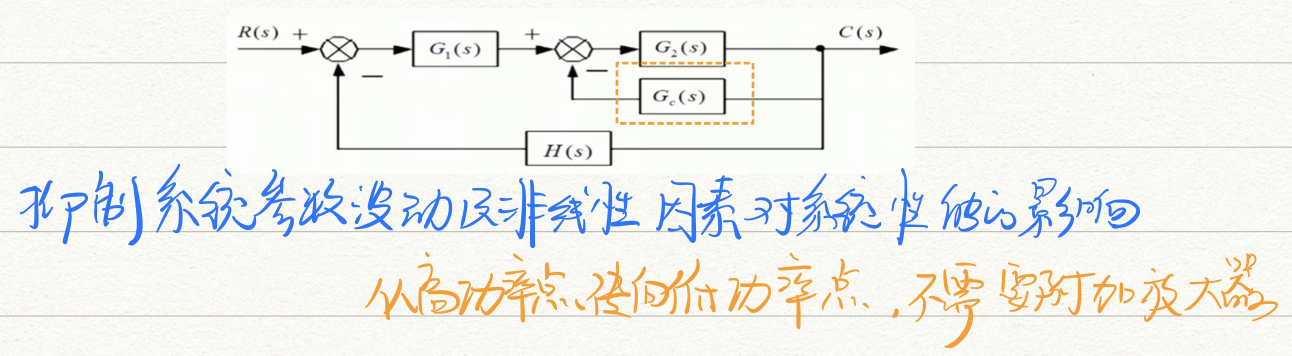 R(s) + G₁(s) + G₂(s) C(s)
− −
G_c(s)
H(s)
抑制系统参数波动及非线性因素对系统性能的影响
从高功率点传向低功率点,不需要附加放大器